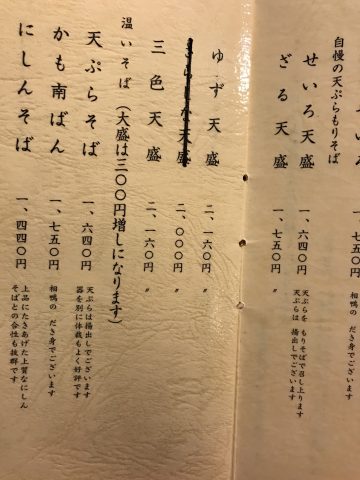 一、七五〇円
相鴨の だき身でございます
自慢の天ぷらもりそば
せいろ天盛 一、六四〇円
天ぷらを もりそばで召し上ります
天ぷらは 揚出しでございます
ざる天盛 一、七五〇円 〃
ゆず天盛 二、一六〇円 〃
さらしな天盛 二、〇〇〇円 〃
三色天盛 二、一六〇円 〃
温いそば (大盛は三〇〇円増しになります)
天ぷらそば 一、六四〇円
天ぷらは揚出しでございます
器を別に体裁もよく好評です
かも南ばん 一、七五〇円 相鴨の だき身でございます
にしんそば 一、四四〇円
上品にたきあげた上質なにしん
そばとの合性も抜群です